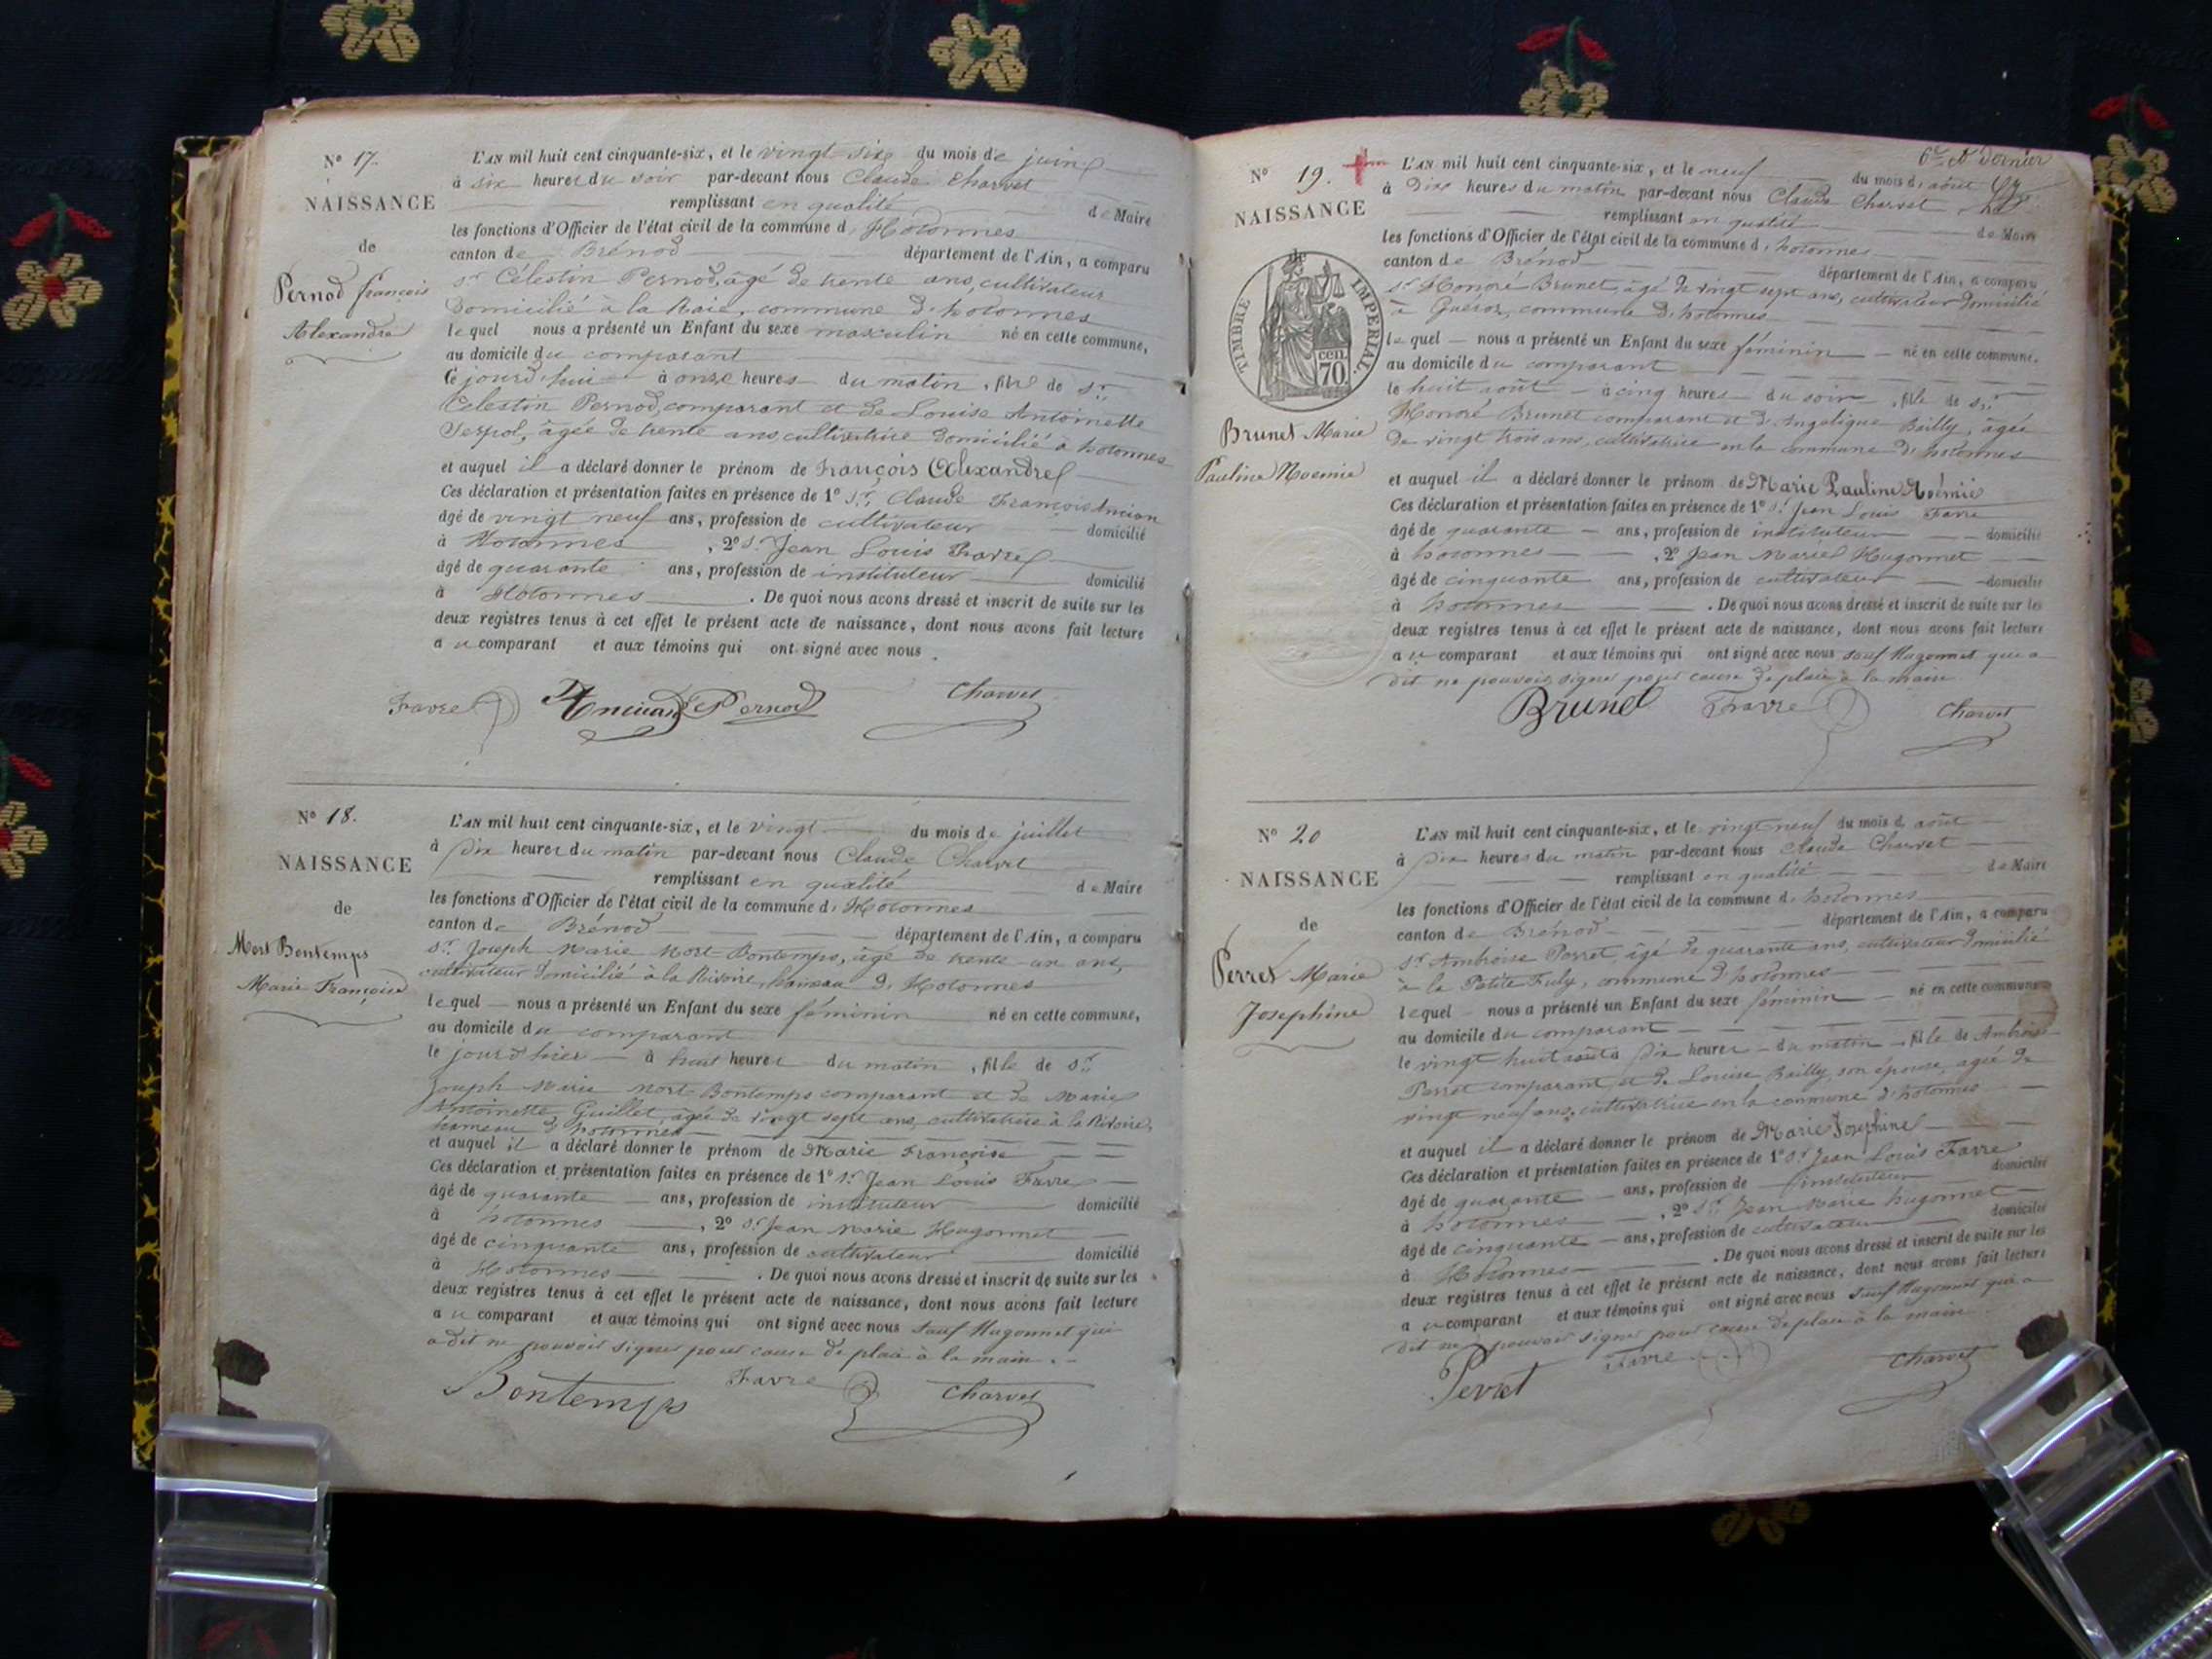 N° 17.
NAISSANCE
de
Pernod françois
Alexandre
L'AN mil huit cent cinquante-six, et le vingt six du mois de juin
à six heures du soir par-devant nous Claude Charvet
remplissant en qualité de Maire
les fonctions d'Officier de l'état civil de la commune d'Hotonnes
canton de Brénod département de l'Ain, a comparu
sr Célestin Pernod, âgé de trente ans, cultivateur
domicilié à la Raie, commune d'hotonnes
lequel nous a présenté un Enfant du sexe masculin né en cette commune,
au domicile du comparant
Ce jourd'hui à onze heures du matin, fils de sr
Célestin Pernod, comparant et de Louise Antoinette
Serpol, âgée de trente ans cultivatrice domicilié à hotonnes
et auquel il a déclaré donner le prénom de françois Alexandre
Ces déclaration et présentation faites en présence de 1° sr Claude François Ancian
âgé de vingt neuf ans, profession de cultivateur domicilié
à Hotonnes, 2° sr Jean Louis Favre
âgé de quarante ans, profession de instituteur domicilié
à Hotonnes. De quoi nous avons dressé et inscrit de suite sur les
deux registres tenus à cet effet le présent acte de naissance, dont nous avons fait lecture
au comparant et aux témoins qui ont signé avec nous.
Favre Ancian Pernod Charvet
N° 18.
NAISSANCE
de
Mort Bontemps
Marie Françoise
L'AN mil huit cent cinquante-six, et le vingt du mois de juillet
à dix heures du matin par-devant nous Claude Charvet
remplissant en qualité de Maire
les fonctions d'Officier de l'état civil de la commune d'Hotonnes
canton de Brénod département de l'Ain, a comparu
sr Joseph Marie Mort-Bontemps, âgé de trente un ans,
cultivateur domicilié à la Rivoire, hameau d'Hotonnes
lequel nous a présenté un Enfant du sexe féminin né en cette commune,
au domicile du comparant
le jour d'hier à huit heures du matin, fille de sr
Joseph Marie Mort-Bontemps comparant et de Marie
Antoinette Guillet, âgée de vingt sept ans, cultivatrice à la Rivoire,
hameau d'hotonnes
et auquel il a déclaré donner le prénom de Marie Françoise
Ces déclaration et présentation faites en présence de 1° sr Jean Louis Favre
âgé de quarante ans, profession de instituteur domicilié
à hotonnes, 2° sr Jean Marie Hugonnet
âgé de cinquante ans, profession de cultivateur domicilié
à Hotonnes. De quoi nous avons dressé et inscrit de suite sur les
deux registres tenus à cet effet le présent acte de naissance, dont nous avons fait lecture
au comparant et aux témoins qui ont signé avec nous sauf Hugonnet qui
a dit ne pouvoir signer pour cause de plaie à la main.
Bontemps Favre Charvet
6e et dernier
N° 19.
NAISSANCE
de
TIMBRE IMPERIAL.
cen.
70
Brunet Marie
Pauline Noemie
L'AN mil huit cent cinquante-six, et le neuf du mois d'août
à dix heures du matin par-devant nous Claude Charvet
remplissant en qualité de Maire
les fonctions d'Officier de l'état civil de la commune d'hotonnes
canton de Brénod département de l'Ain, a comparu
sr Honoré Brunet, âgé de vingt sept ans, cultivateur domicilié
à Guéroz, commune d'hotonnes
lequel nous a présenté un Enfant du sexe féminin né en cette commune,
au domicile du comparant
le huit août à cinq heures du soir, fille de sr
Honoré Brunet comparant et d'Angélique Bailly, âgée
de vingt trois ans, cultivatrice en la commune d'hotonnes
et auquel il a déclaré donner le prénom de Marie Pauline Noémie
Ces déclaration et présentation faites en présence de 1° sr Jean Louis Favre
âgé de quarante ans, profession de instituteur domicilié
à hotonnes, 2° Jean Marie Hugonnet
âgé de cinquante ans, profession de cultivateur domicilié
à hotonnes. De quoi nous avons dressé et inscrit de suite sur les
deux registres tenus à cet effet le présent acte de naissance, dont nous avons fait lecture
au comparant et aux témoins qui ont signé avec nous sauf Hugonnet qui a
dit ne pouvoir signer pour cause de plaie à la main
Brunet Favre Charvet
N° 20
NAISSANCE
de
Perret Marie
Joséphine
L'AN mil huit cent cinquante-six, et le vingt neuf du mois d'août
à dix heures du matin par-devant nous Claude Charvet
remplissant en qualité de Maire
les fonctions d'Officier de l'état civil de la commune d'hotonnes
canton de Brénod département de l'Ain, a comparu
sr Ambroise Perret, âgé de quarante ans, cultivateur domicilié
à la Petite Fuly, commune d'hotonnes
lequel nous a présenté un Enfant du sexe féminin né en cette commune
au domicile du comparant
le vingt huit août à dix heures du matin, fille de Ambroise
Perret comparant, et de Louise Bailly, son épouse, agée de
vingt neuf ans, cultivatrice en la commune d'hotonnes
et auquel il a déclaré donner le prénom de Marie Joséphine
Ces déclaration et présentation faites en présence de 1° sr Jean Louis Favre
âgé de quarante ans, profession de instituteur domicilié
à hotonnes, 2° sr Jean Marie hugonnet
âgé de cinquante ans, profession de cultivateur domicilié
à Hotonnes. De quoi nous avons dressé et inscrit de suite sur les
deux registres tenus à cet effet le présent acte de naissance, dont nous avons fait lecture
au comparant et aux témoins qui ont signé avec nous sauf Hugonnet qui a
dit ne pouvoir signer pour cause de plaie à la main
Perret Favre Charvet